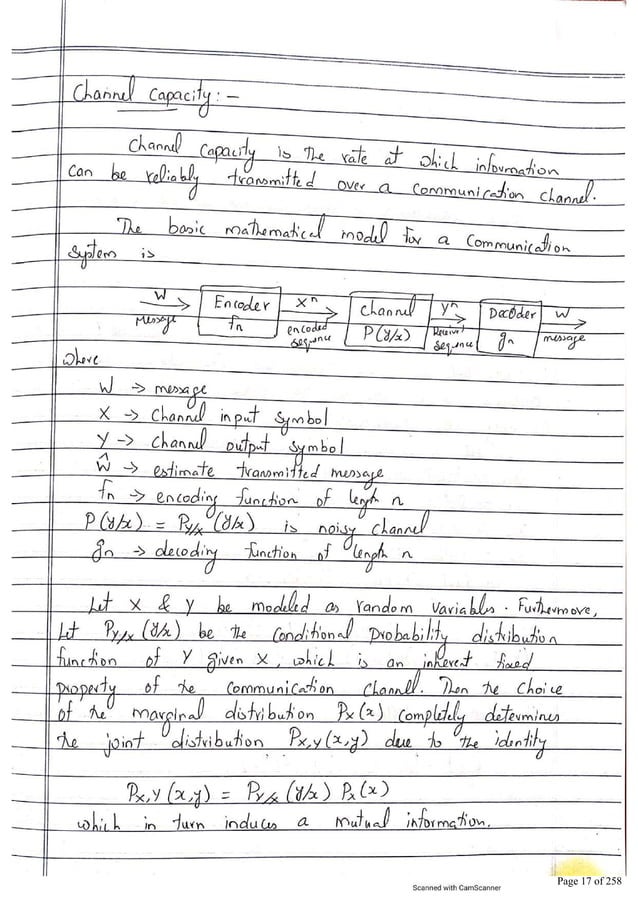 Channel Capacity : -
Channel Capacity is the rate at which information
can be reliably transmitted over a communication channel.
The basic mathematical model for a communication
system is
W Encoder Xⁿ channel yⁿ Decoder W
Message fn encoded sequence P(y/x) Received sequence gn message
where
W -> message
X -> Channel input symbol
Y -> channel output symbol
Ŵ -> estimate transmitted message
fn -> encoding function of length n
P(y/x) = Py/x (y/x) is noisy channel
gn -> decoding function of length n
Let X & Y be modeled as random variables. Furthermore,
let Py/x (y/x) be the conditional probability distribution
function of Y given X, which is an inherent fixed
property of the communication channel. Then the choice
of the marginal distribution Px(x) completely determines
the joint distribution Px,y(x,y) due to the identity
Px,y (x,y) = Py/x (y/x) Px(x)
which in turn induces a mutual information.
Scanned with CamScanner
Page 17 of 258